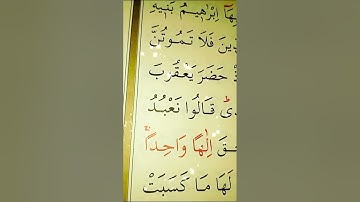 هَٓا اِبْرٰهٖيمُ بَنٖيهِ
دّٖينَ فَلَا تَمُوتُنَّ
ذْ حَضَرَ يَعْقُوبَ
دٖىۜ قَالُوا نَعْبُدُ
حٰقَ اِلٰهًا وَاحِدًاۚ
لَهَا مَا كَسَبَتْ